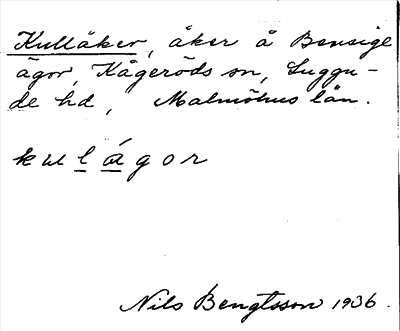 Kullåker, åker å Bensige
ägor, Kågeröds sn, Luggu-
de hd, Malmöhus län.
kulágor
Nils Bengtsson 1936.